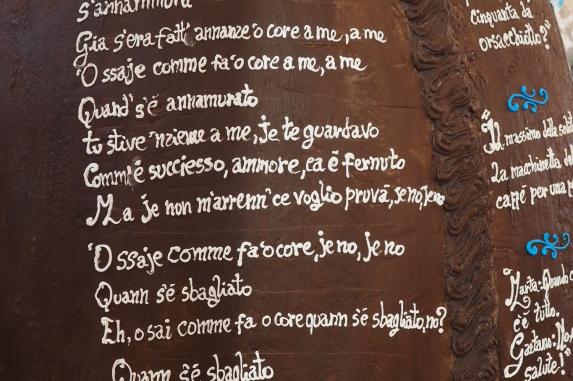 s'annammora
Gia s'era fatt' annanze 'o core a me, a me
'O ssaje comme fa 'o core a me, a me
Quand' s'é annamurato
tu stive 'nzieme a me, je te guardavo
Comm'é succiesso, ammore, ca é fernuto
Ma je non m'arrenn' ce voglio pruvá, je no, je no
'O ssaje comme fa 'o core, je no, je no
Quann s'é sbagliato
Eh, o sai comme fa o core quann s'é sbagliato, no?
Quann s'é sbagliato
cinquanta da
orsacchiotto?"
"Il massimo della
La macchinetta del
caffé per una
Marta: Quando
c'é tutto.
Gaetano: No
salute!"